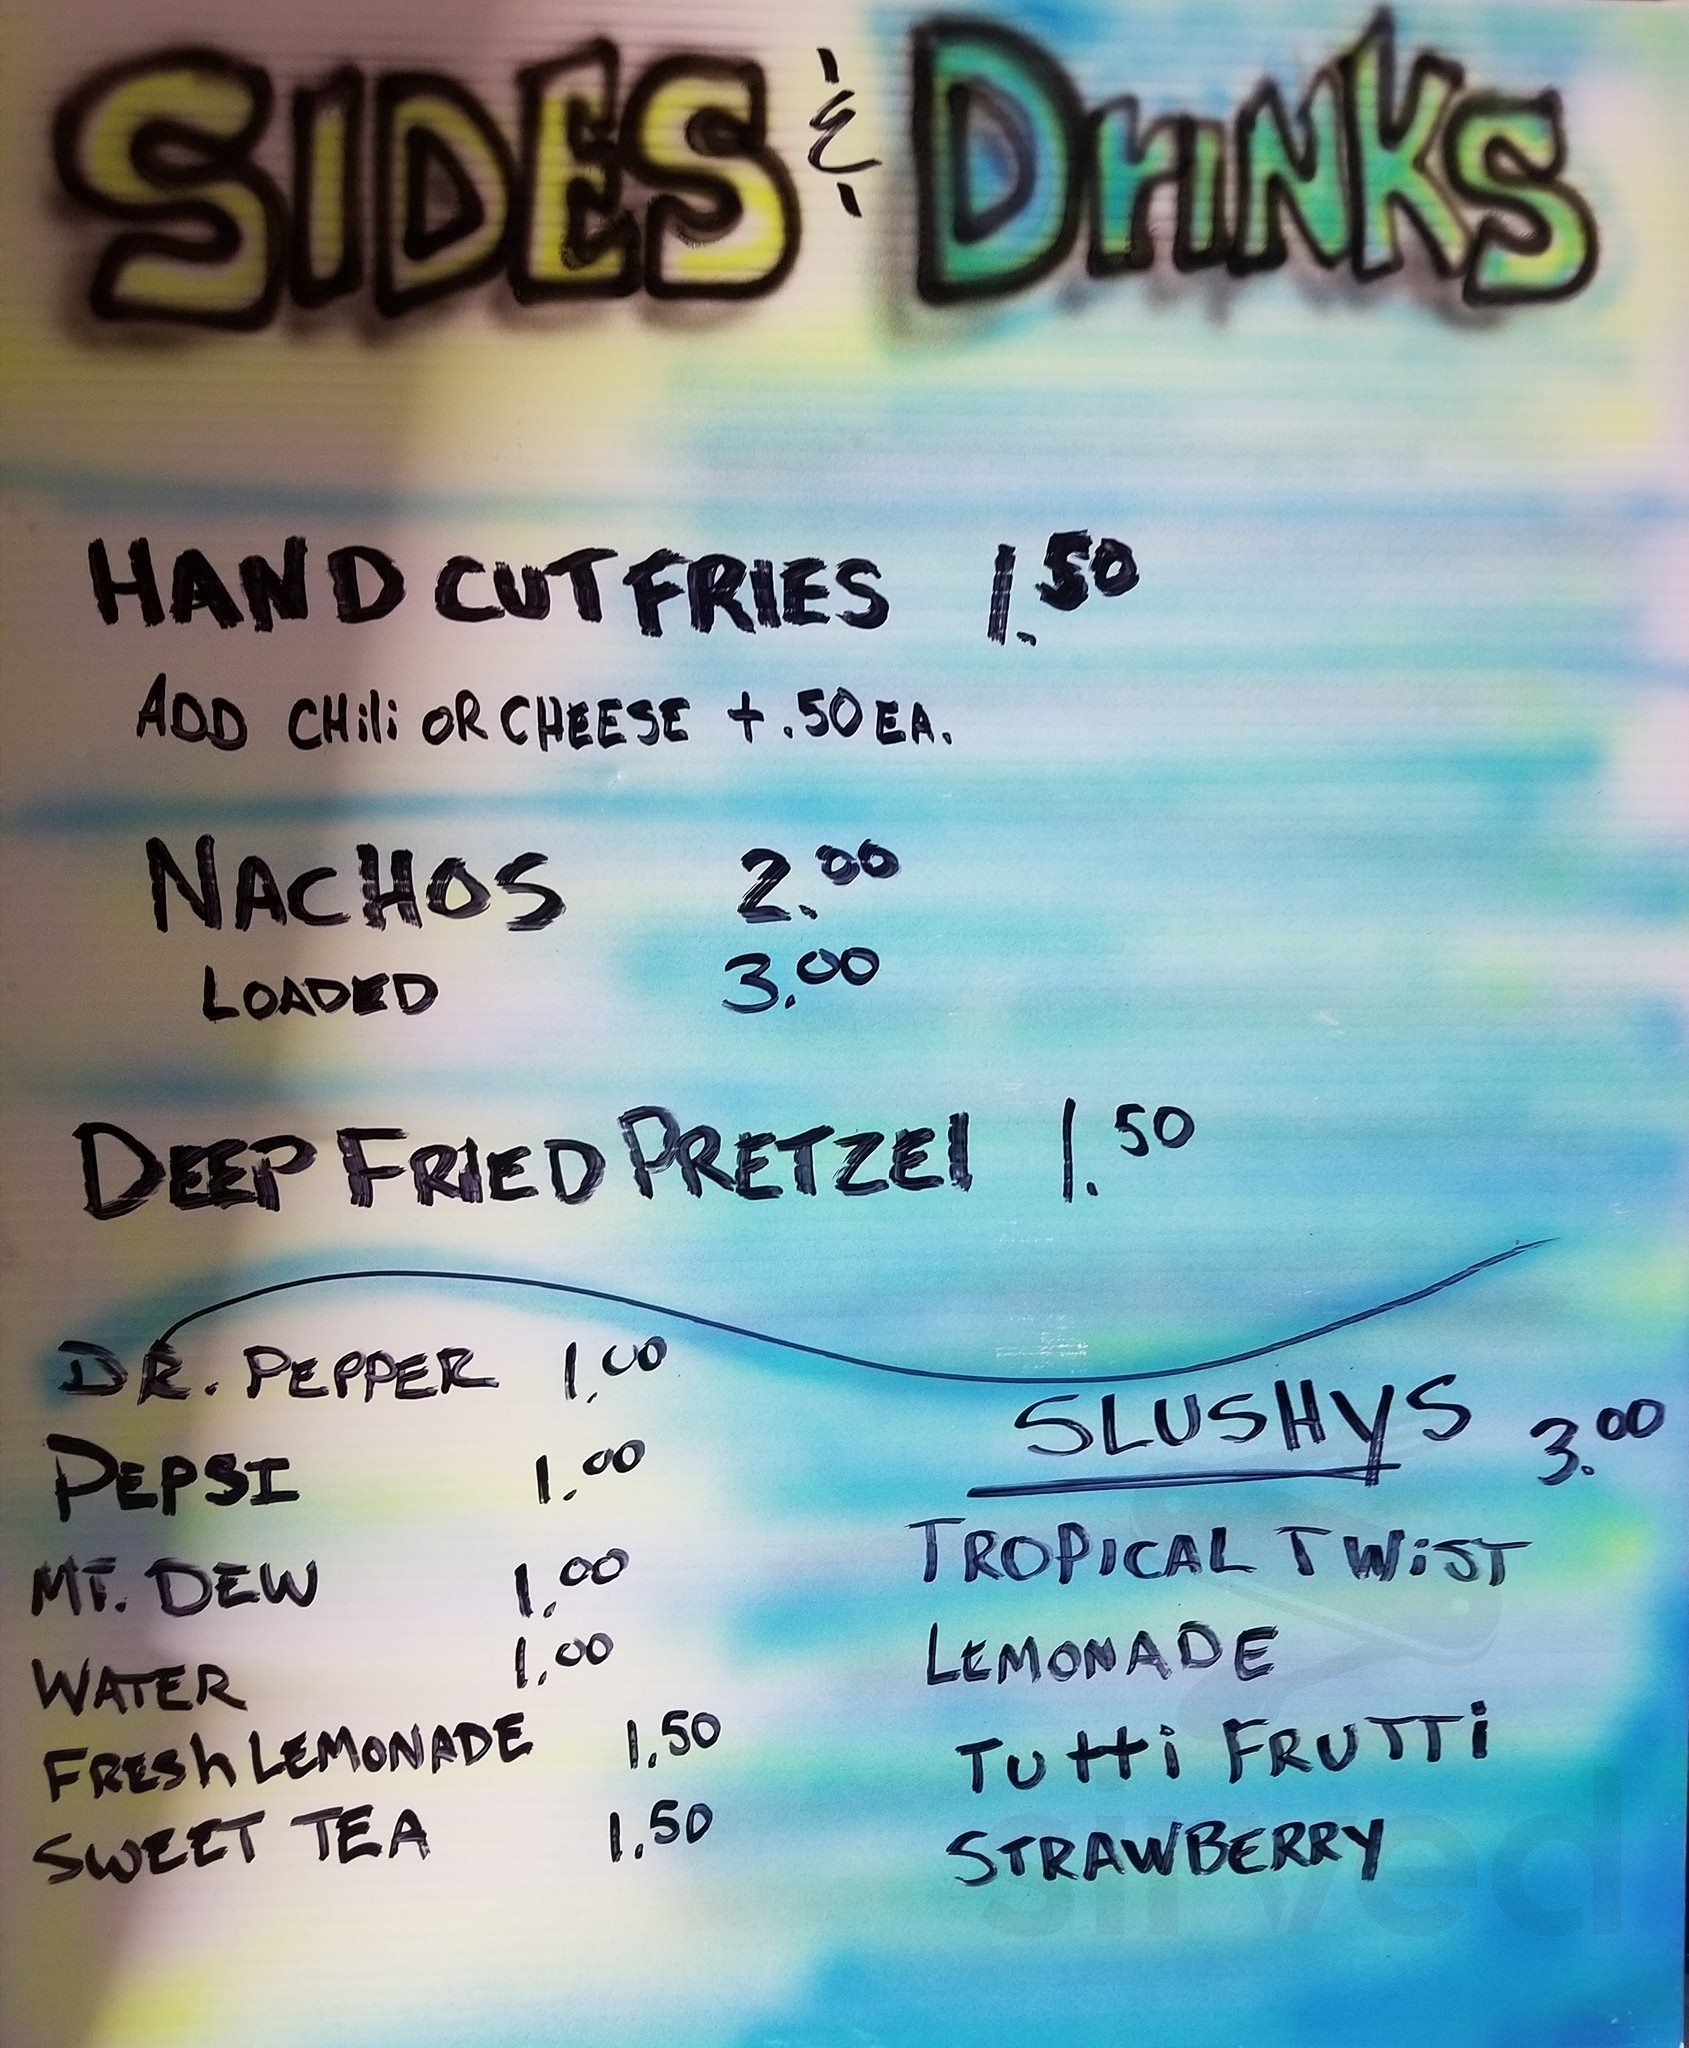 SIDES & DrINKS
HAND CUT FRIES 1.50
ADD CHili OR CHEESE +.50 EA.
NACHOS 2.00
LOADED 3.00
DEEP FRIED PRETZEl 1.50
DR. PEPPER 1.00
PEPSI 1.00
MT. DEW 1.00
WATER 1.00
FRESh LEMONADE 1.50
SWEET TEA 1.50
SLUSHYS 3.00
TROPICAL TWiST
LEMONADE
TuTTi FRUTTi
STRAWBERRY
sirved